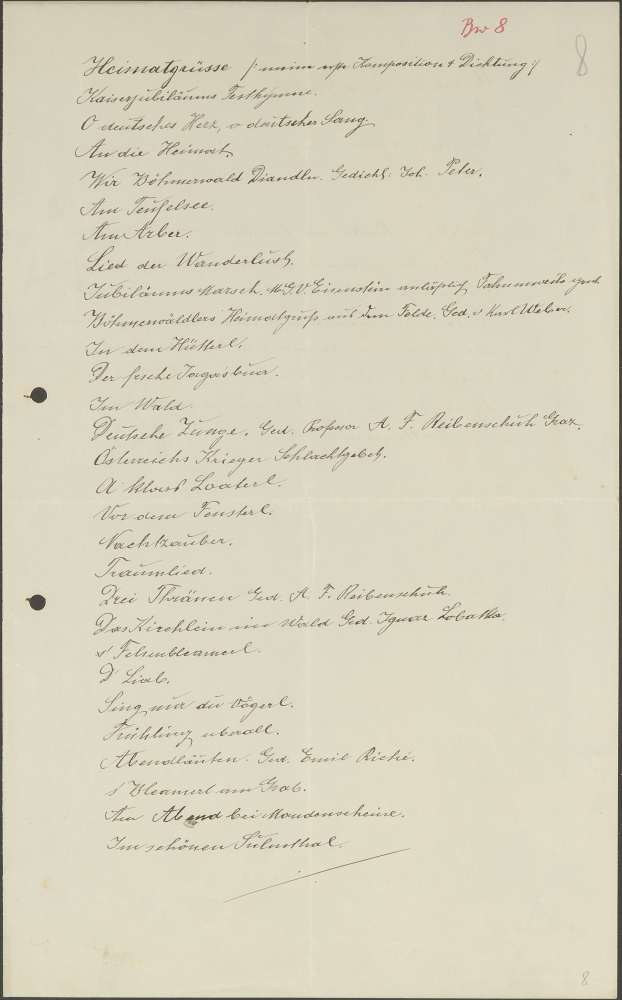 Bw 8
8
Heimatgrüsse /: meine erste Komposition & Dichtung :/
Kaiserjubiläums Festhymne.
O deutsches Herz, o deutscher Sang.
An die Heimat.
Wir Böhmerwald Diandln. Gedicht: Joh. Peter.
Am Teufelsee.
Am Arber.
Lied der Wanderlust.
Jubiläums Marsch. M.G.V. Eisenstein anläßlich Fahnenweihe
Böhmerwäldlers Heimatgruß aus dem Felde. Ged. v Karl Weber.
In dem Hütterl.
Der fesche Jagasbua.
Im Wald.
Deutsche Zunge. Ged. Professor A. F. Reibenschuh Graz.
Österreichs Krieger Schlachtgebet.
A kloas Loaterl.
Vor dem Fensterl.
Nachtzauber.
Traumlied.
Drei Thränen Ged. A. F. Reibenschuh.
Das Kirchlein im Wald Ged. Ignaz
s' Felsenbleamerl.
D' Liab.
Sing nur du Vögerl.
Frühling überall.
Abendläuten. Ged. Emil
s' Bleamerl am Grab.
Am Abend bei Mondenscheine.
Im schönen Sulmthal.
8